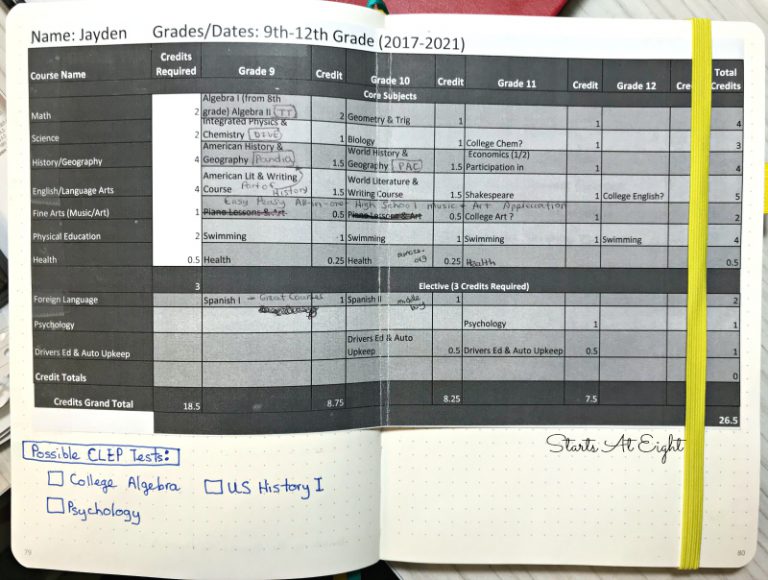 Name: Jayden Grades/Dates: 9th-12th Grade (2017-2021)
Course Name Credits Required Grade 9 Credit Grade 10 Credit Grade 11 Credit Grade 12 Total Credits
Core Subjects
Math 2 Algebra I (from 8th grade) Algebra II (TT) 2 Geometry & Trig 1 1 4
Science 2 Integrated Physics & Chemistry (DIVE) 1 Biology 1 College Chem? 1 3
History/Geography 4 American History & Geography (Pandia) 1.5 World History & Geography (PAC) 1.5 Economics (1/2) Participation in 1 4
English/Language Arts 4 American Lit & Writing Course Part of History 1.5 World Literature & Writing Course 1.5 Shakespeare 1 College English? 5
Easy Peasy All-in-one High School music + Art Appreciation
Fine Arts (Music/Art) 1 Piano Lessons & Art 0.5 Piano Lessons & Art 0.5 College Art ? 1 2
Physical Education 2 Swimming 1 Swimming 1 Swimming 1 Swimming 4
Health 0.5 Health 0.25 Health 0.25 Health 0.5
3 Elective (3 Credits Required)
Foreign Language Spanish I - Great Courses 1 Spanish II 1 2
Psychology Psychology 1 1
Drivers Ed & Auto Upkeep Drivers Ed & Auto Upkeep 0.5 Drivers Ed & Auto Upkeep 0.5 1
Credit Totals 0
Credits Grand Total 18.5 8.75 8.25 7.5 26.5
Starts At Eight
Possible CLEP Tests:
College Algebra US History I
Psychology
79 80